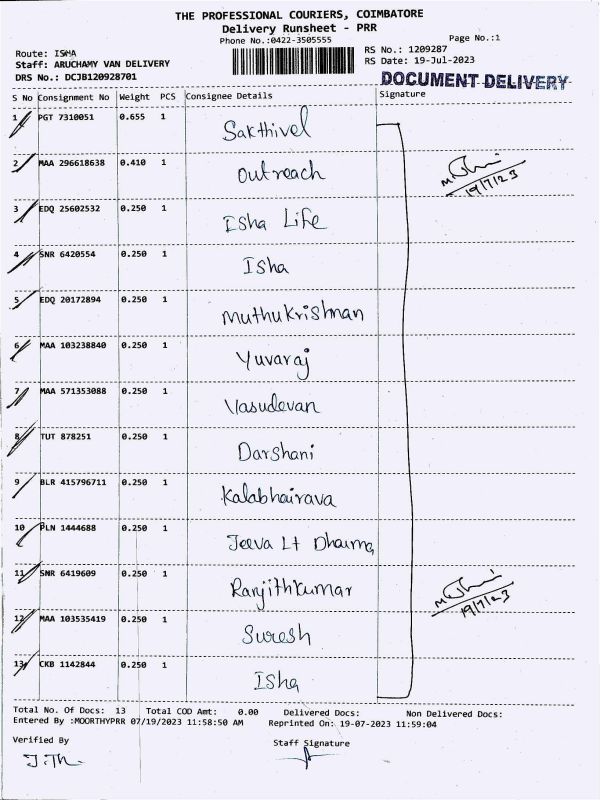 THE PROFESSIONAL COURIERS, COIMBATORE
Delivery Runsheet - PRR
Phone No.:0422-3505555
Page No.:1
Route: ISMA
RS No.: 1209287
Staff: ARUCHAMY VAN DELIVERY
RS Date: 19-Jul-2023
DRS No.: DCJB120928701
DOCUMENT DELIVERY
S No Consignment No Weight PCS Consignee Details Signature
1 PGT 7310051 0.655 1 Sakthivel
2 MAA 296618638 0.410 1 Outreach
19/7/23
3 EDQ 25602532 0.250 1 Isha Life
4 SNR 6420554 0.250 1 Isha
5 EDQ 20172894 0.250 1 Muthukrishnan
6 MAA 103238840 0.250 1 Yuvaraj
7 MAA 571353088 0.250 1 Vasudevan
8 TUT 878251 0.250 1 Darshani
9 BLR 415796711 0.250 1 Kalabhairava
10 PLN 1444688 0.250 1 Jeeva Lt
11 SNR 6419609 0.250 1 Ranjithkumar
19/7/23
12 MAA 103535419 0.250 1 Suresh
13 CKB 1142844 0.250 1 Isha
Total No. Of Docs: 13 Total COD Amt: 0.00 Delivered Docs: Non Delivered Docs:
Entered By :MOORTHYPRR 07/19/2023 11:58:50 AM Reprinted On: 19-07-2023 11:59:04
Verified By
Staff Signature